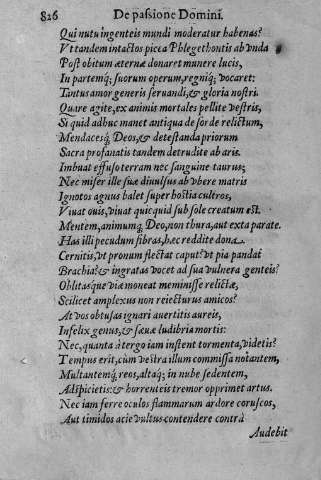 826 De passione Domini.
Qui nutu ingenteis mundi moderatur habenas?
Vt tandem intactos picea Phlegethontis ab vnda
Post obitum æternæ donaret munere lucis,
In partemq́; suorum operum, regniq́; vocaret:
Tantus amor generis seruandi, & gloria nostri.
Quare agite, ex animis mortales pellite vestris,
Si quid adhuc manet antiqua de sorde relictum,
Mendacesq́; Deos, & detestanda priorum
Sacra profanatis tandem detrudite ab aris.
Imbuat effuso terram nec sanguine taurus;
Nec miser ille suæ diuulsus ab vbere matris
Ignotos agnus balet super hostia cultros,
Viuat ouis, viuat quicquid sub sole creatum est.
Mentem, animumq́; Deo, non thura, aut exta parate.
Has illi pecudum fibras, hæc reddite dona.
Cernitis, vt pronum flectat caput? vt pia pandat
Brachia? & ingratas vocet ad sua vulnera genteis?
Oblitasque viæ moneat meminisse relictæ,
Scilicet amplexus non reiecturus amicos?
At vos obtusas ignari auertitis aureis,
Infelix genus, & sæuæ ludibria mortis:
Nec, quanta à tergo iam instent tormenta, videtis?
Tempus erit, cùm vestra illum commissa notantem,
Multantemq́; reos, altaq́; in nube sedentem,
Adspicietis: & horrenteis tremor opprimet artus.
Nec iam ferre oculos flammarum ardore coruscos,
Aut timidos acie vultus contendere contrà
Audebit